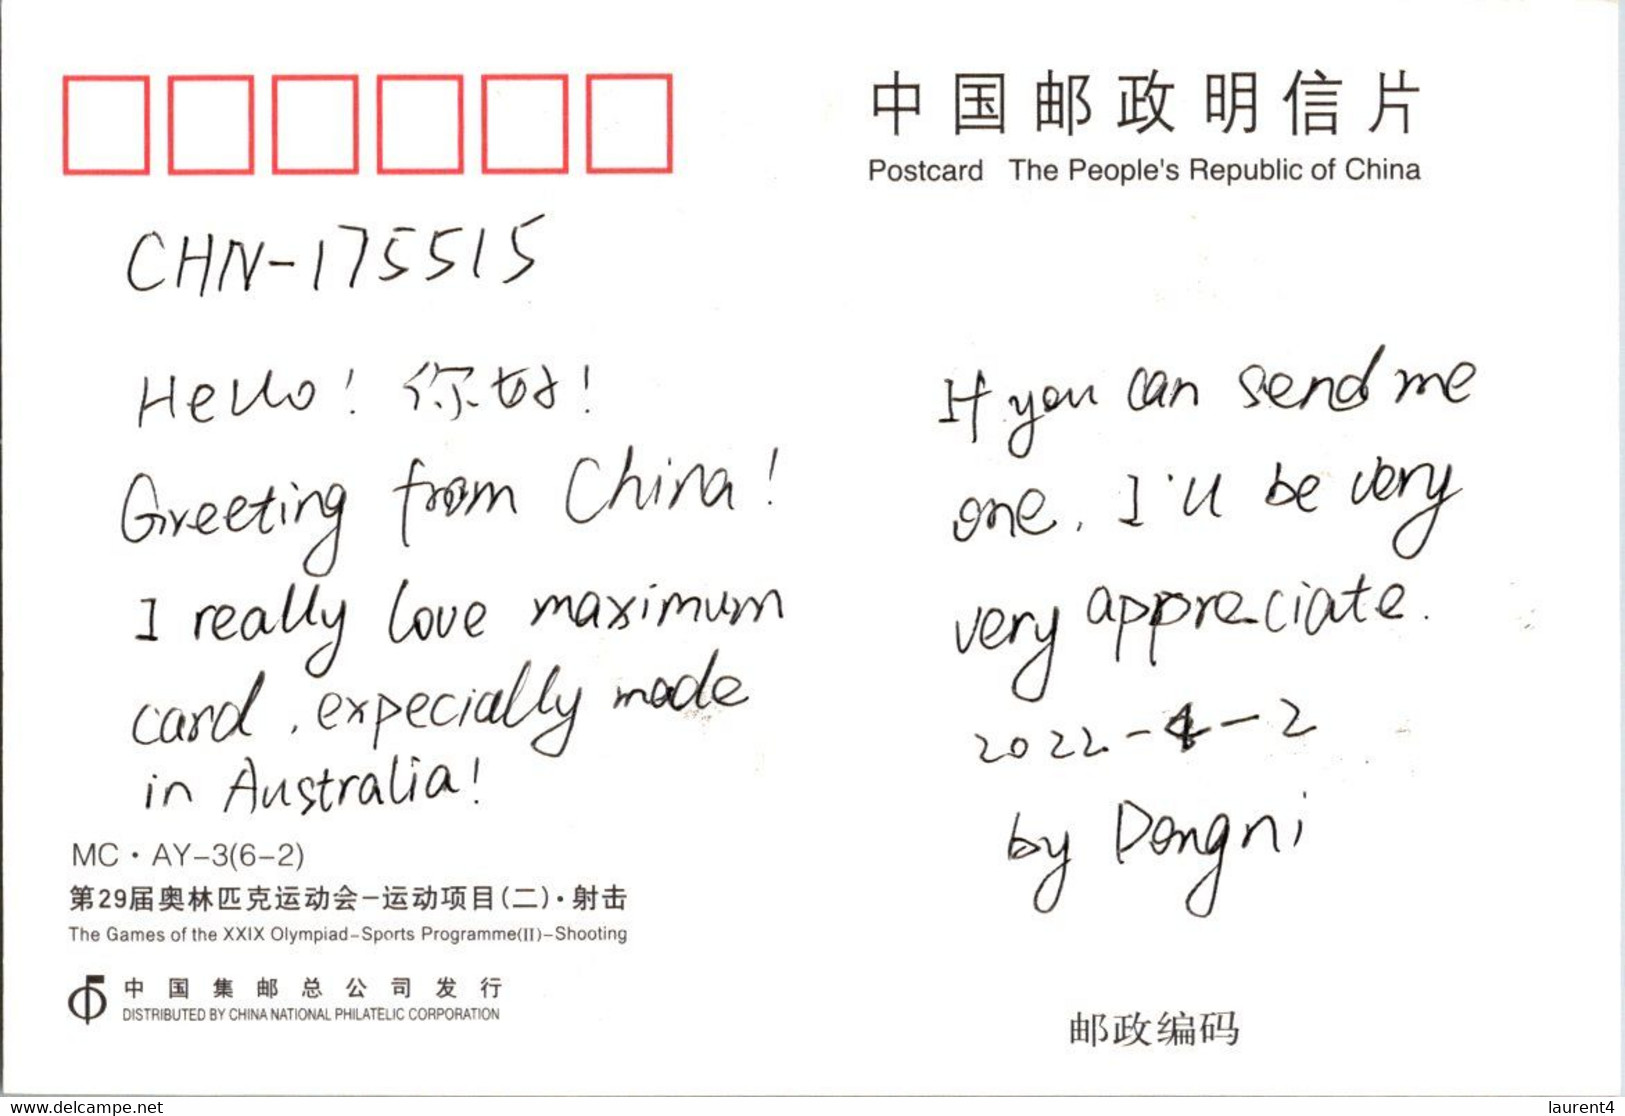 中国邮政明信片
Postcard The People's Republic of China
CHN-175515
Hello! 你好!
Greeting from China!
I really love maximum
card, expecially made
in Australia!
If you can send me
one, I'll be very
very appreciate.
2022-4-2
by Dongni
MC·AY-3(6-2)
第29届奥林匹克运动会-运动项目(二)·射击
The Games of the XXIX Olympiad-Sports Programme(II)-Shooting
中国集邮总公司发行
DISTRIBUTED BY CHINA NATIONAL PHILATELIC CORPORATION
邮政编码
www.delcampe.net
laurent4